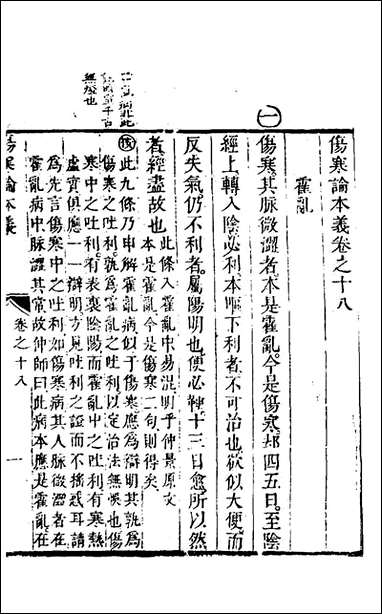 傷寒論本義卷之十八
霍亂
一
傷寒其脉微澀者本是霍亂今是傷寒却四五日至陰
經上轉入陰必利本嘔下利者不可治也欲似大便而
反失氣仍不利者屬陽明也便必鞕十三日愈所以然
者經盡故也
此條入霍亂中易混明乎仲景原文
本是霍亂今是傷寒二句則得矣
此九條乃申解霍亂病似于傷寒應為辯明其孰為
傷寒之吐利孰為霍亂之吐利以定治法無悞也傷
寒中之吐利有表裏陰陽而霍亂中之吐利有寒熱
虛實俱應一一辯明方見吐利之證而不摻混耳請
為先言傷寒中之吐利如傷寒病其人脉微澀者在
霍亂病中脉澀其常故仲師曰此病本應是霍亂在
傷寒論本義
卷之十八
一